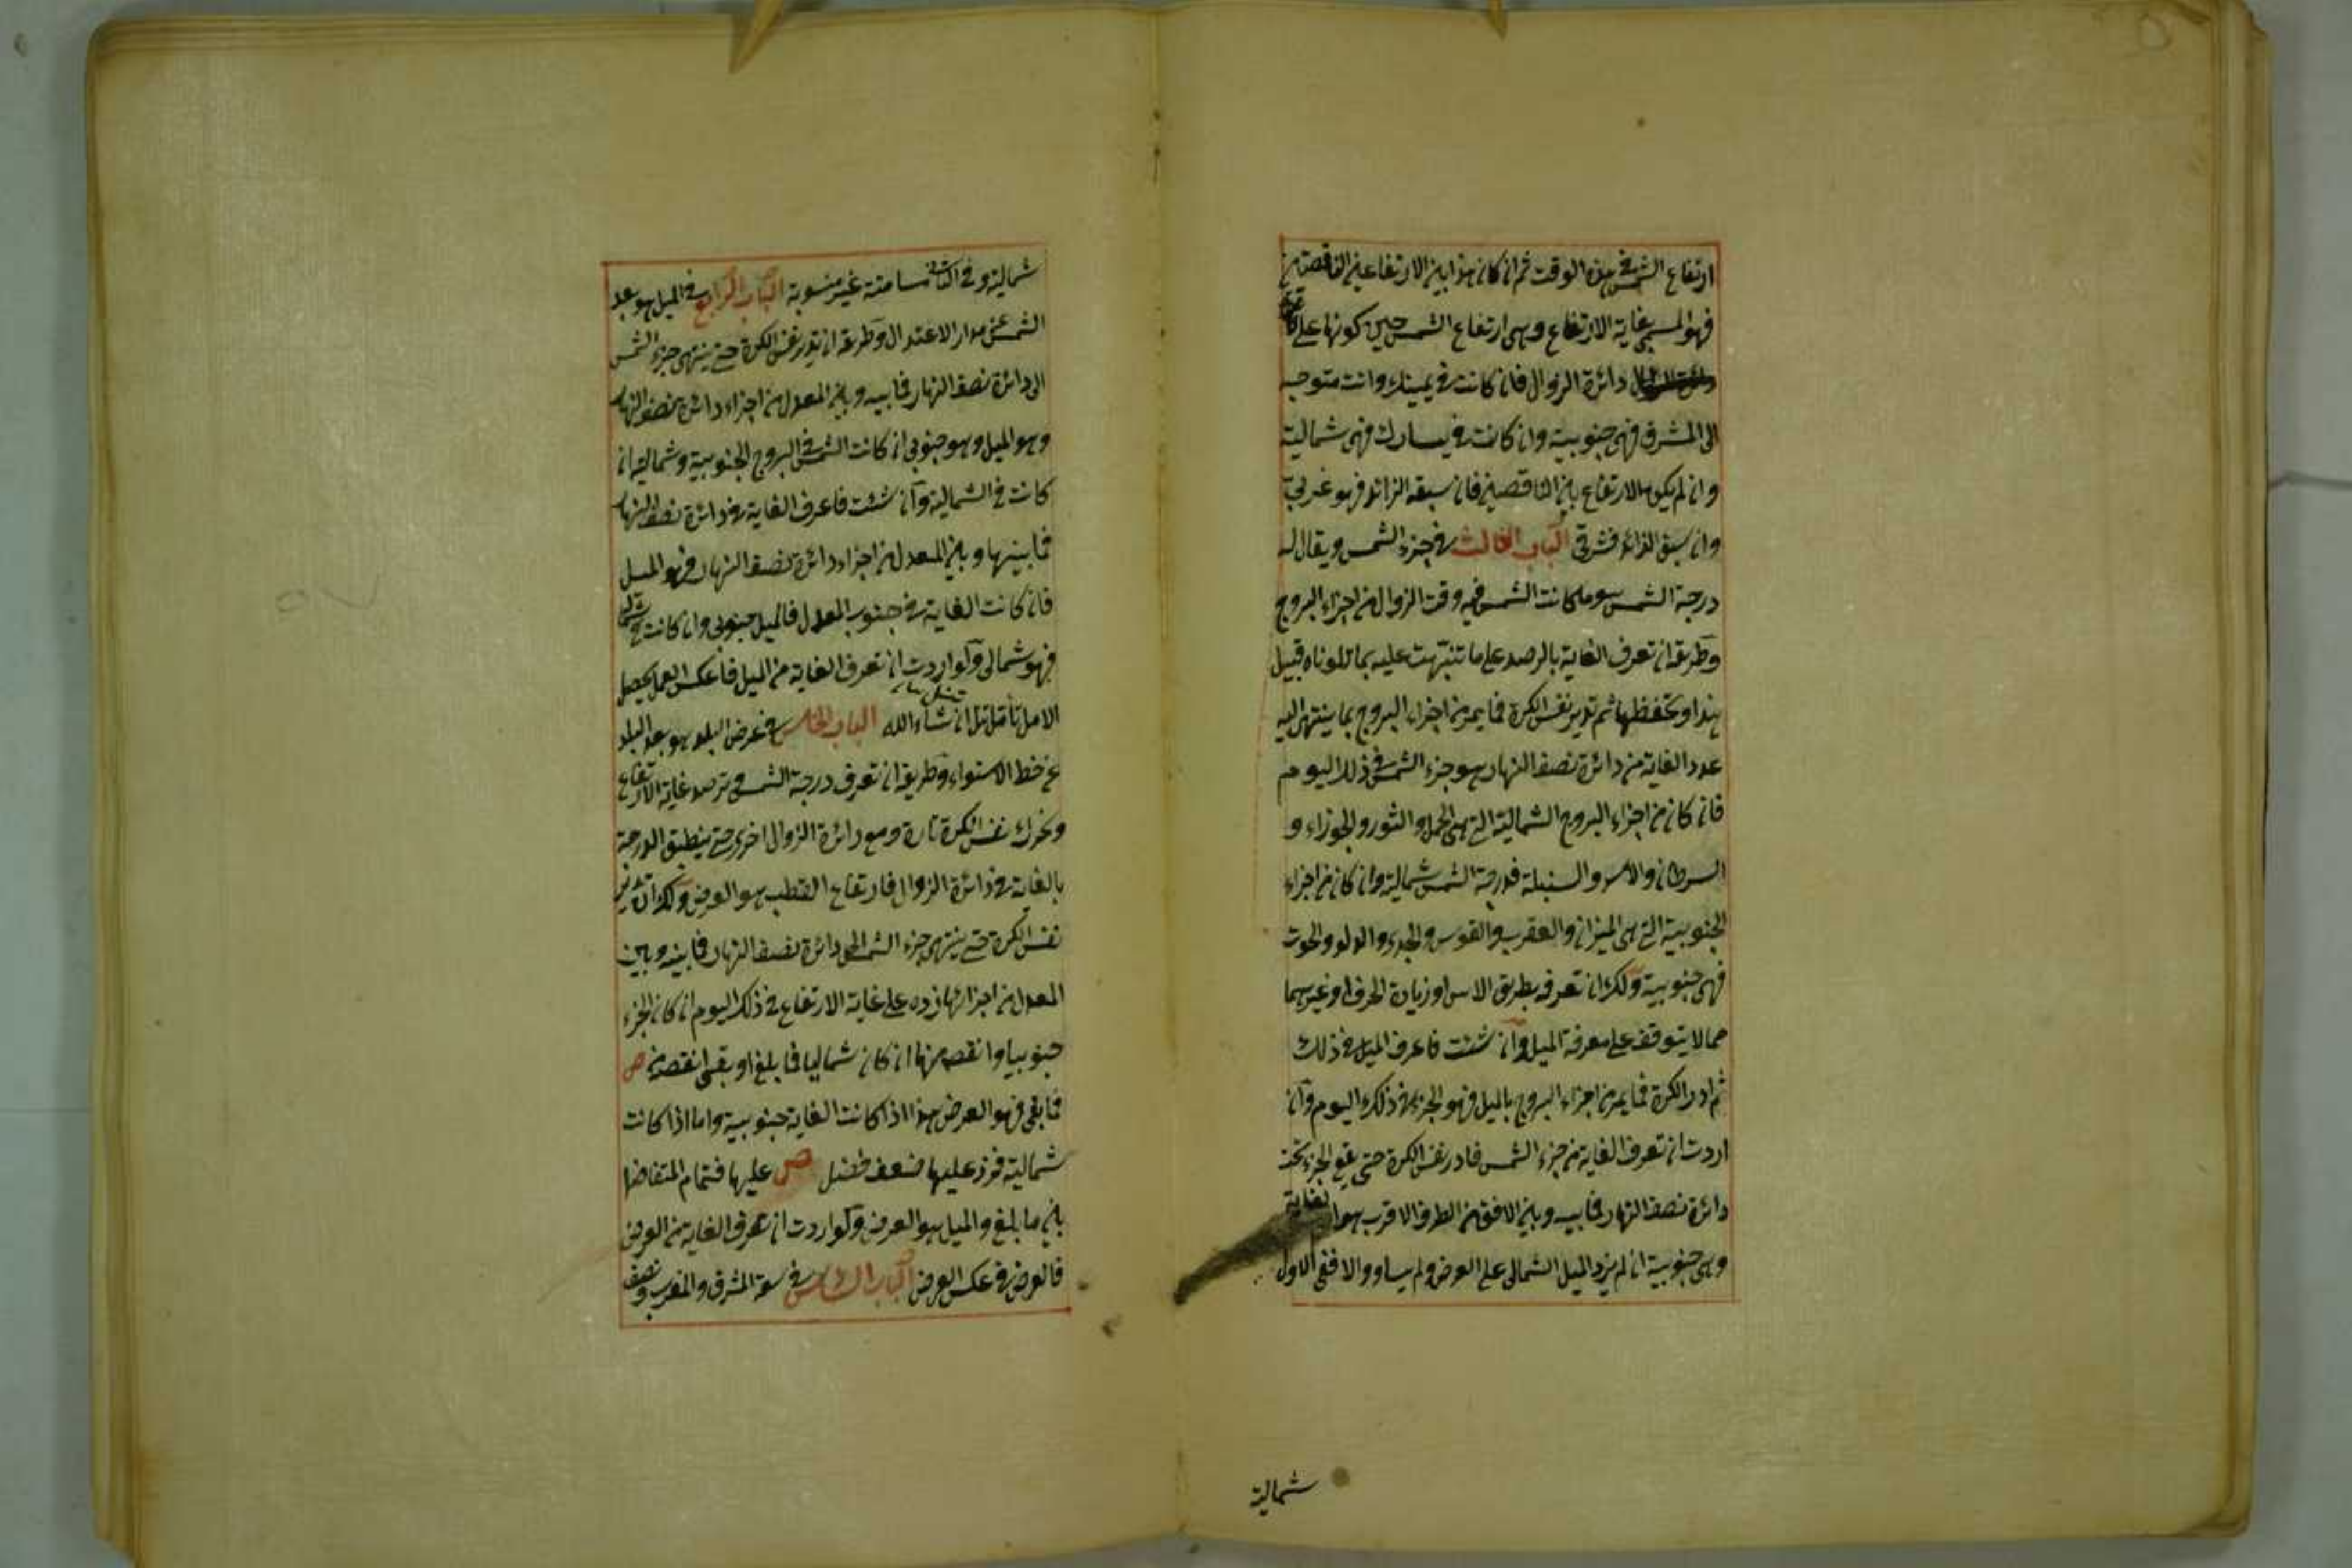 ارتفاع الشمس في هذه الوقت ثم ان كان هذا بين الارتفاعين الناقصين
فهو المسمى بغاية الارتفاع وهى ارتفاع الشمس حين كونها على
دائرة الزوال فان كانت في يمينك وانت متوجه
الى المشرق فهى جنوبية وان كانت في يسارك فهى شمالية
وان لم يكن الارتفاع بين الناقصين فان سبقه الزائد فهو غربى
وان سبق الزائد فشرقى الباب الثالث في جزء الشمس ويقال له
درجة الشمس هو ما كانت الشمس فيه وقت الزوال من اجزاء البروج
وطريقه ان تعرف الغاية بالرصد على ما تنبهت عليه بما تلوناه قبيل
هذا وتحفظها ثم تدير نفس الكرة فما يمر من اجزاء البروج بما ينتهى اليه
عدد الغاية من دائرة نصف النهار هو جزء الشمس في ذلك اليوم
فان كان من اجزاء البروج الشمالية التى هى الحمل والثور والجوزاء و
السرطان والاسد والسنبلة فدرجة الشمس شمالية وان كان من اجزاء
الجنوبية التى هى الميزان والعقرب والقوس والجدى والدلو والحوت
فهى جنوبية ولك ان تعرفه بطريق الاس او زيادة الحرف او غيرهما
مما لا يتوقف على معرفة الميل وان شئت فاعرف الميل في ذلك
ثم ادر الكرة فما يمر من اجزاء البروج بالميل فهو الجزء في ذلك اليوم وان
اردت ان تعرف الغاية من جزء الشمس فادر نفس الكرة حتى يقع الجزء تحت
دائرة نصف النهار فما بينه وبين الافق من الطرف الاقرب هو الغاية
وهى جنوبية ان لم يزد الميل الشمالى على العرض ولم يساو والا ففى الاول
شمالية
شمالية وفى الثانى مسامتة غير منسوبة الباب الرابع في الميل هو بعد
الشمس عن مدار الاعتدال وطريقه ان تدير نفس الكرة حتى ينتهى جزء الشمس
الى دائرة نصف النهار فما بينه وبين المعدل من اجزاء دائرة نصف النهار
وهو الميل وهو جنوبى ان كانت الشمس فى البروج الجنوبية وشمالية ان
كانت فى الشمالية وان شئت فاعرف الغاية في دائرة نصف النهار
فما بينها وبين المعدل من اجزاء دائرة نصف النهار فهو الميل
فان كانت الغاية في جنوب المعدل فالميل جنوبى وان كانت في شماله
فهو شمالى ولو اردت ان تعرف الغاية من الميل فاعكس العمل يحصل
الامل تأمل تنل ان شاء الله الباب الخامس في عرض البلد هو بعد البلد
عن خط الاستواء وطريقه ان تعرف درجة الشمس وترصد غاية الارتفاع
وتحرك نفس الكرة تارة ومع دائرة الزوال اخرى حتى ينطبق الدرجة
بالغاية في دائرة الزوال فارتفاع القطب هو العرض ولك ان تدير
نفس الكرة حتى ينتهى جزء الشمس الى دائرة نصف النهار فما بينه وبين
المعدل من اجزائها زده على غاية الارتفاع فى ذلك اليوم ان كان الجزء
جنوبيا وانقصه منها ان كان شماليا فما بلغ او بقى انقصه من ص
فما بقى فهو العرض هذا اذا كانت الغاية جنوبية واما اذا كانت
شمالية فزد عليها ضعف فضل ص عليها فتمام المتفاضل
بين ما بلغ والميل هو العرض ولو اردت ان تعرف الغاية من العرض
فالعرض في عكس العرض الباب السادس في سعة المشرق والمغرب ونصف